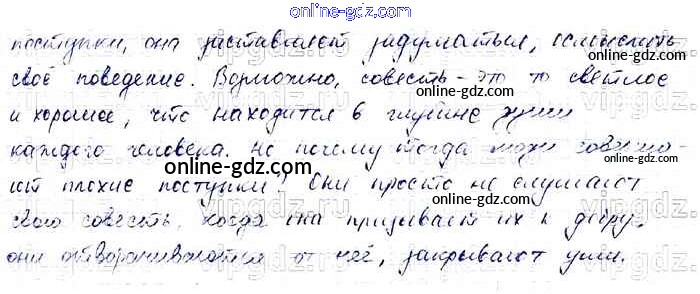 online-gdz.com
поступки, она заставляет задуматься, осмыслить
своё поведение. Возможно, совесть - это то светлое
и хорошее, что находится в глубине души
каждого человека. Но почему тогда люди соверша-
ют плохие поступки? Они просто не слушают
свою совесть, когда она призывает их к добру,
они отворачиваются от неё, закрывают уши.
online-gdz.com
online-gdz.com
online-gdz.com
online-gdz.com
online-gdz.com